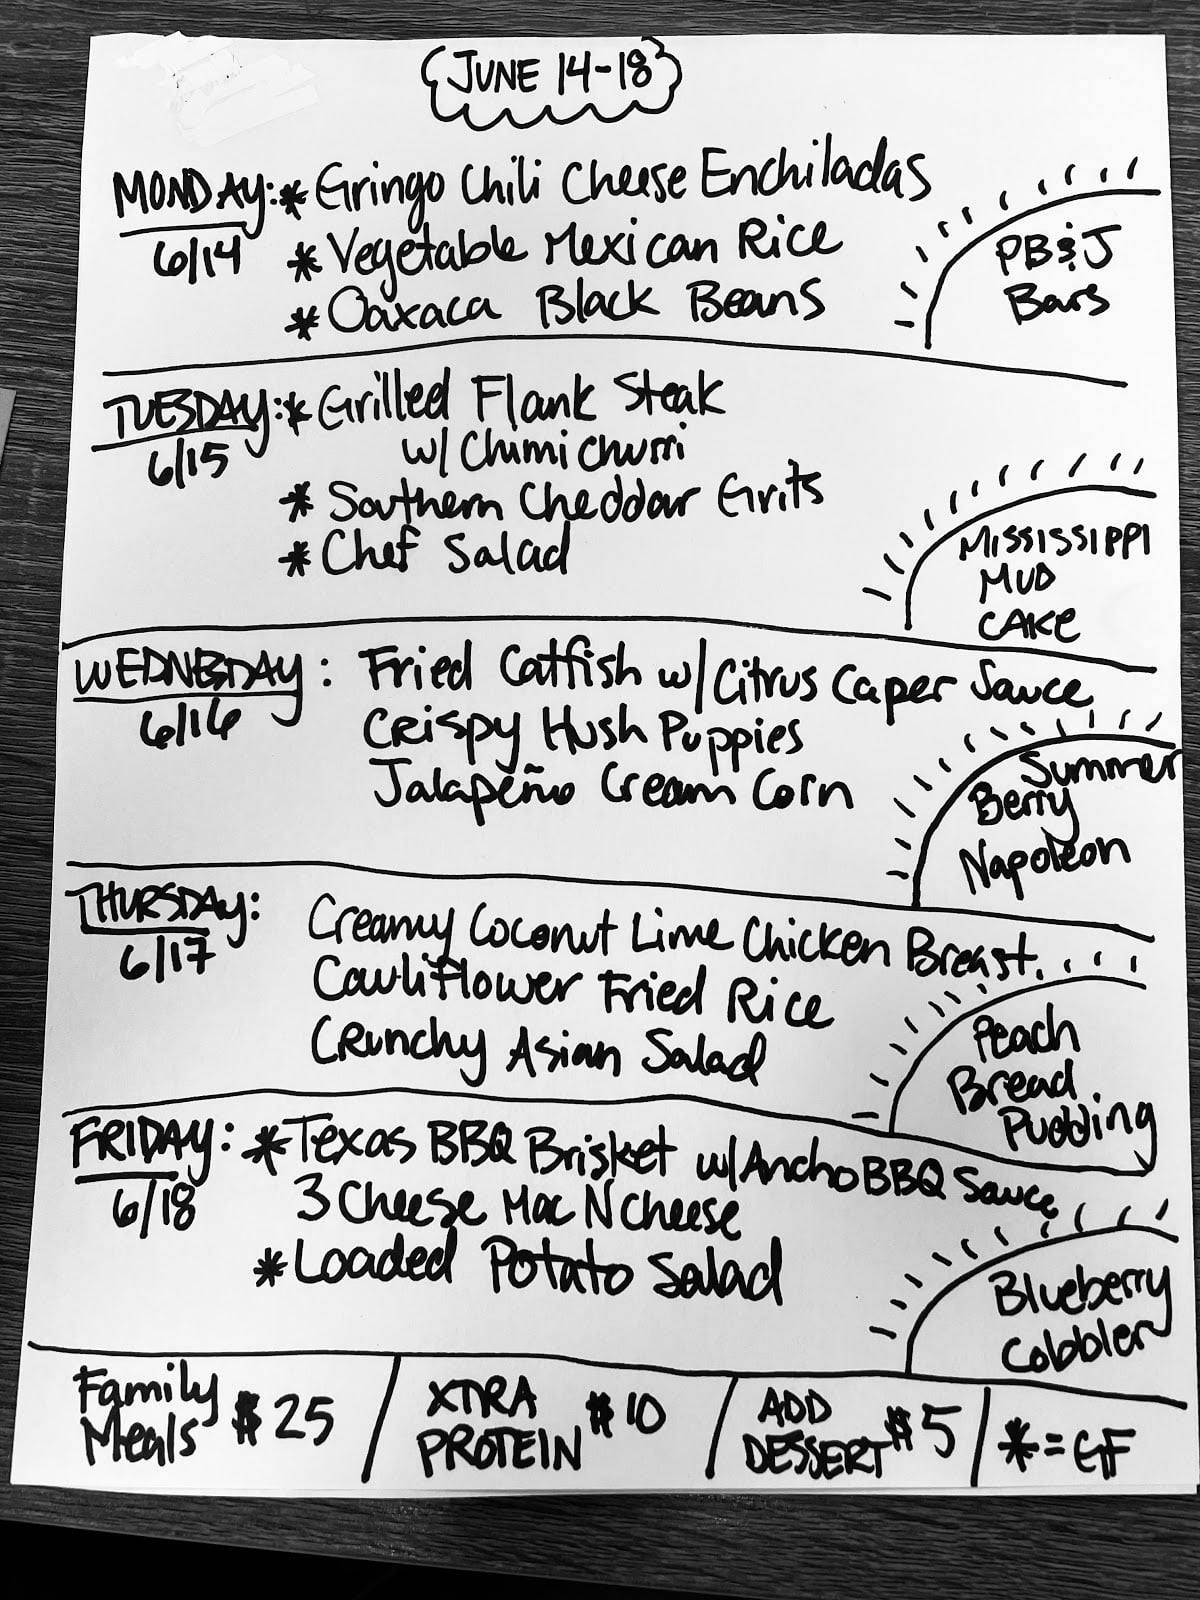 JUNE 14-18
MONDAY: * Gringo Chili Cheese Enchiladas
6/14
* Vegetable Mexican Rice
* Oaxaca Black Beans
PB&J
Bars
TUESDAY: * Grilled Flank Steak
6/15
w/ Chimichurri
* Southern Cheddar Grits
* Chef Salad
MISSISSIPPI
MUD
CAKE
WEDNESDAY: Fried Catfish w/ Citrus Caper Sauce
6/16
Crispy Hush Puppies
Jalapeño Cream Corn
Summer
Berry
Napoleon
THURSDAY: Creamy Coconut Lime Chicken Breast.
6/17
Cauliflower Fried Rice
Crunchy Asian Salad
Peach
Bread
Pudding
FRIDAY: * Texas BBQ Brisket w/ Ancho BBQ Sauce
6/18
3 Cheese Mac N Cheese
* Loaded Potato Salad
Blueberry
Cobbler
Family
Meals $25
XTRA
PROTEIN $10
ADD
DESSERT $5
* = GF